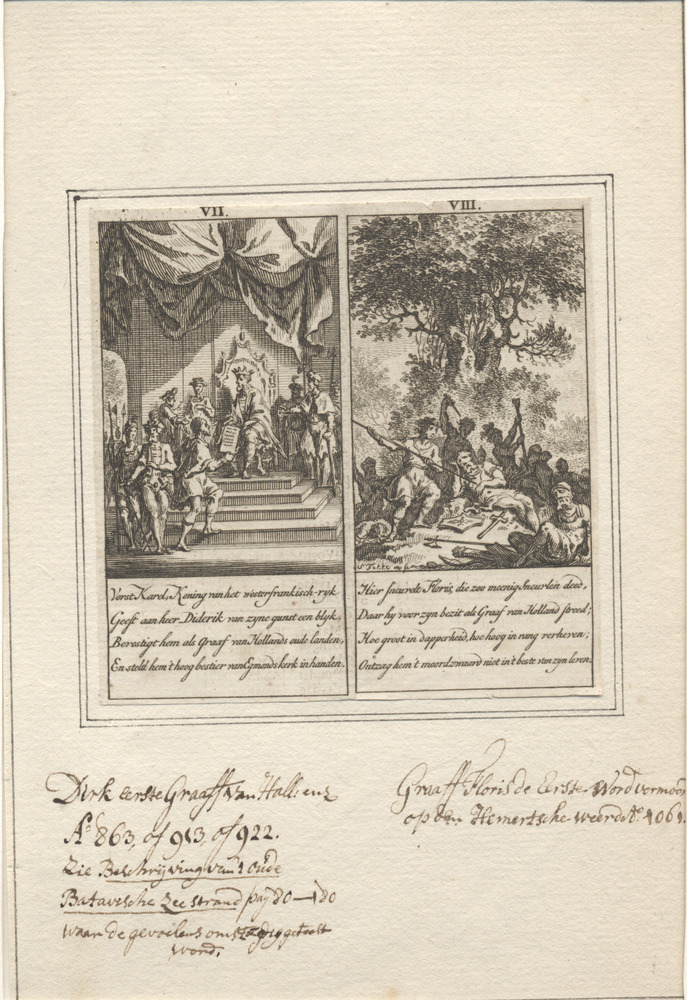 VII.
Vorst Karel, Koning van het westerfrankisch-ryk
Geeft aan heer Diderik van zyne gunst een blyk,
Bevestigt hem als Graaf van Hollands oude landen,
En steld hem 't hoog bestier van Egmonds kerk in handen.
VIII.
Hier sneuvelt Floris, die zoo meenig sneuvlen deed,
Daar hy voor zyn bezit als Graaf van Holland streed;
Hoe groot in dapperheid, hoe hoog in rang verheven;
Ontzag hem 't moordzwaard niet in 't beste van zyn leven.
Dirk eerste Graaff van Holl: enz
Aº 863, of 913, of 922.
Zie Beschryving van 't oude
Batavische Zee strand pag 80 — 180
waar de gevoelens
word.
Graaff Floris de Eerste Word vermoor
op den Hemertsche weerd Aº 1061.